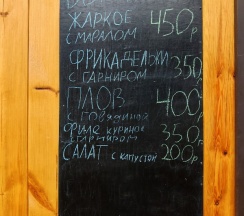 ЖАРКОЕ 450р
С МАРАЛОМ
ФРИКАДЕЛЬКИ
С ГАРНИРОМ 350р
ПЛОВ 400р
С ГОВЯДИНОЙ
ФИЛЕ КУРИНОЕ 350р
С ГАРНИРОМ
САЛАТ С КАПУСТОЙ 200р.